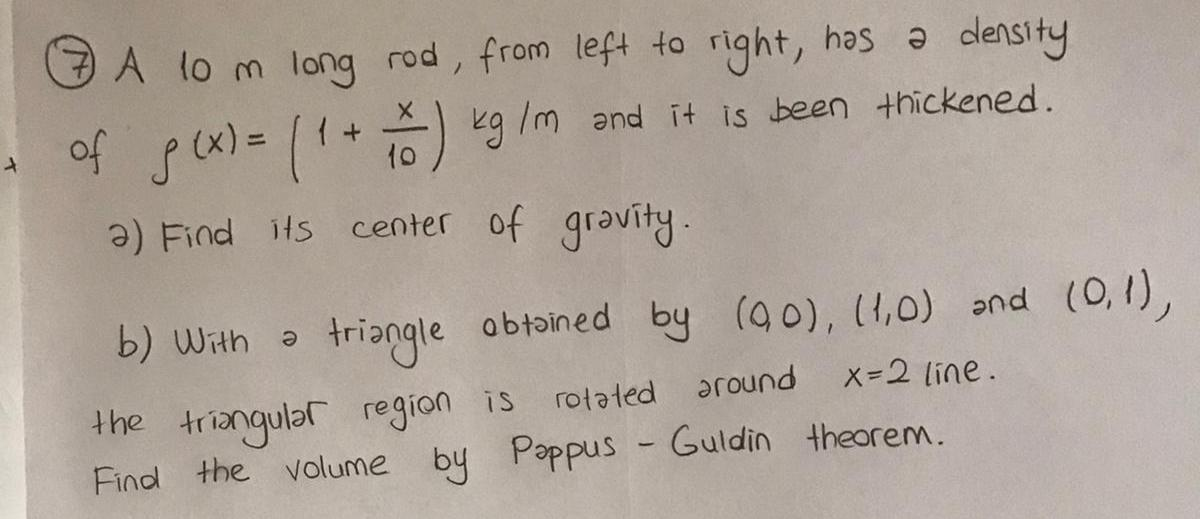 ⑦ A 10 m long rod, from left to right, has a density
of ρ(x) = (1 + x/10) kg/m and it is been thickened.
a) Find its center of gravity.
b) With a triangle obtained by (0,0), (1,0) and (0,1),
the triangular region is rotated around x=2 line.
Find the volume by Pappus - Guldin theorem.